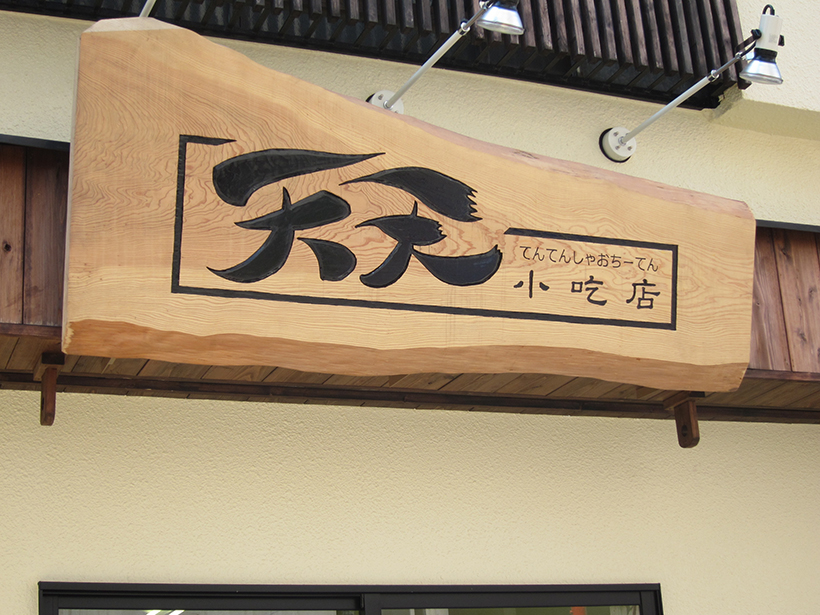 天天
てんてんしゃおちーてん
小吃店